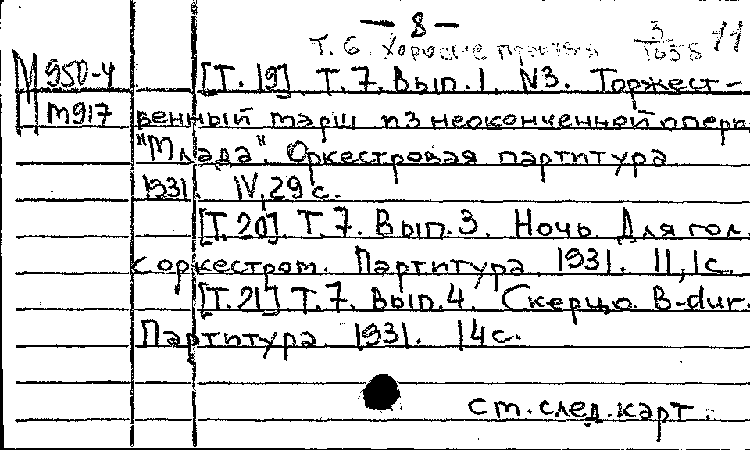 — 8 —
Т. 6. Хоровые 3/1038 11
М950-4 [Т. 19]. Т. 7. Вып. 1. N3. Торжест-
М917 венный марш из неоконченной оперы
"Млада". Оркестровая партитура
1931. IV, 29 с.
[Т. 20]. Т. 7. Вып. 3. Ночь. Для гол.
с оркестром. Партитура. 1931. II, 1с
[Т. 21] Т. 7. Вып. 4. Скерцо. B-dur.
Партитура. 1931. 14с.
см. след. карт.